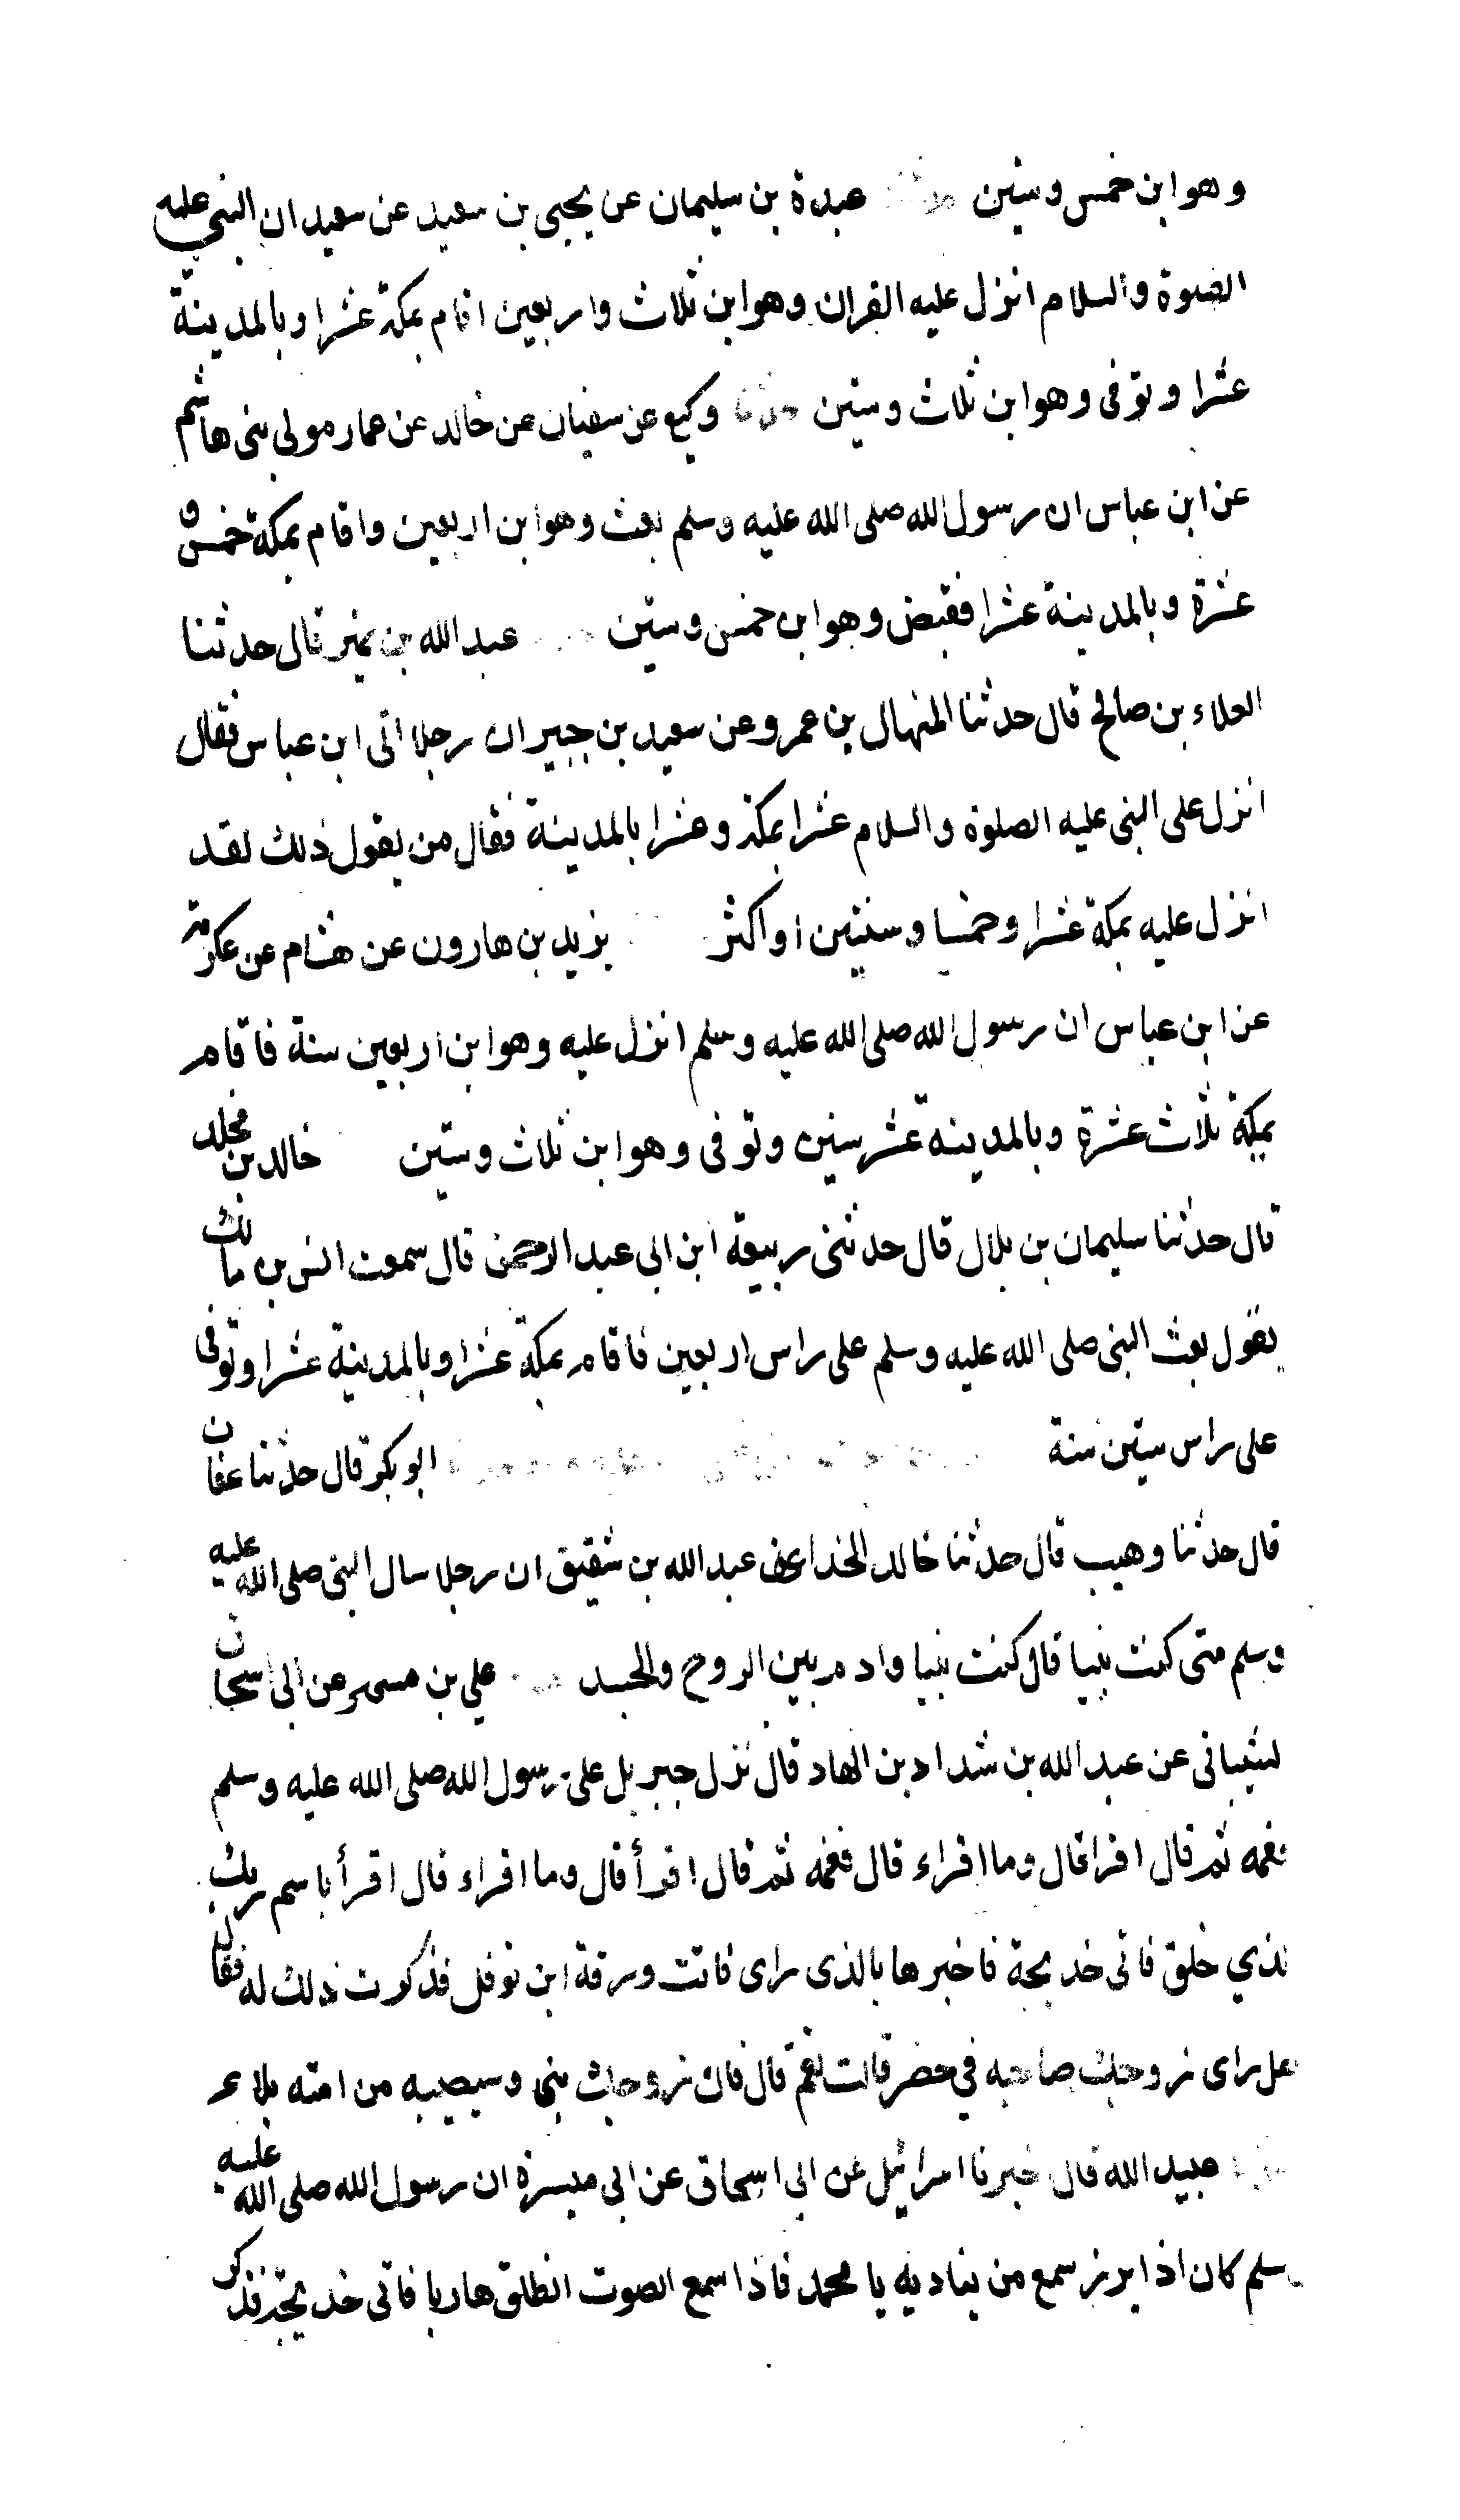 وهو ابن خمس وستين عبدة بن سليمان عن يحيى بن سعيد عن سعيد ان النبي عليه
الصلوة والسلام انزل عليه القران وهو ابن ثلاث واربعين اقام بمكة عشرا وبالمدينة
عشرا وتوفى وهو ابن ثلاث وستين حدثنا وكيع عن سفيان عن خالد عن عمار مولى بنى هاشم
عن ابن عباس ان رسول الله صلى الله عليه وسلم بعث وهو ابن اربعين واقام بمكة خمس
عشرة وبالمدينة عشرا فقبض وهو ابن خمس وستين عبد الله بن نمير قال حدثنا
العلاء بن صالح قال حدثنا المنهال بن عمرو عن سعيد بن جبير ان رجلا اتى ابن عباس فقال
انزل على النبى عليه الصلوة والسلام عشرا بمكة وعشرا بالمدينة فقال من يقول ذلك لقد
انزل عليه بمكة عشرا وخمسا وسنتين او اكثر يزيد بن هارون عن هشام عن عكرمة
عن ابن عباس ان رسول الله صلى الله عليه وسلم انزل عليه وهو ابن اربعين سنة فاقام
بمكة ثلاث عشرة وبالمدينة عشر سنين وتوفى وهو ابن ثلاث وستين خالد بن مخلد
قال حدثنا سليمان بن بلال قال حدثنى ربيعة ابن ابى عبد الرحمن قال سمعت انس بن مالك
يقول بعث النبى صلى الله عليه وسلم على راس اربعين فاقام بمكة عشرا وبالمدينة عشرا وتوفى
على راس ستين سنة ابو بكر قال حدثنا عفان
قال حدثنا وهيب قال حدثنا خالد الحذا عن عبد الله بن شقيق ان رجلا سال النبى صلى الله عليه
وسلم متى كنت نبيا قال كنت نبيا وادم بين الروح والجسد على بن مسهر عن ابى اسحاق
لشيبانى عن عبد الله بن شداد بن الهاد قال نزل جبريل على رسول الله صلى الله عليه وسلم
فغمه ثم قال اقرا قال وما اقراء قال فغمه ثم قال اقرأ قال وما اقراء قال اقرأ باسم ربك
لذي خلق فاتى خديجة فاخبرها بالذى راى فاتت ورقة ابن نوفل فذكرت ذلك له فقال
هل راى زوجك صاحبه في خضر قالت نعم قال فان زوجك نبى وسيصيبه من امته بلاء
عبيد الله قال خبرنا اسرائيل عن ابى اسحاق عن ابى ميسرة ان رسول الله صلى الله عليه
وسلم كان اذا برز سمع من يناديه يا محمد فاذا سمع الصوت انطلق هاربا فاتى خديجة فذكر